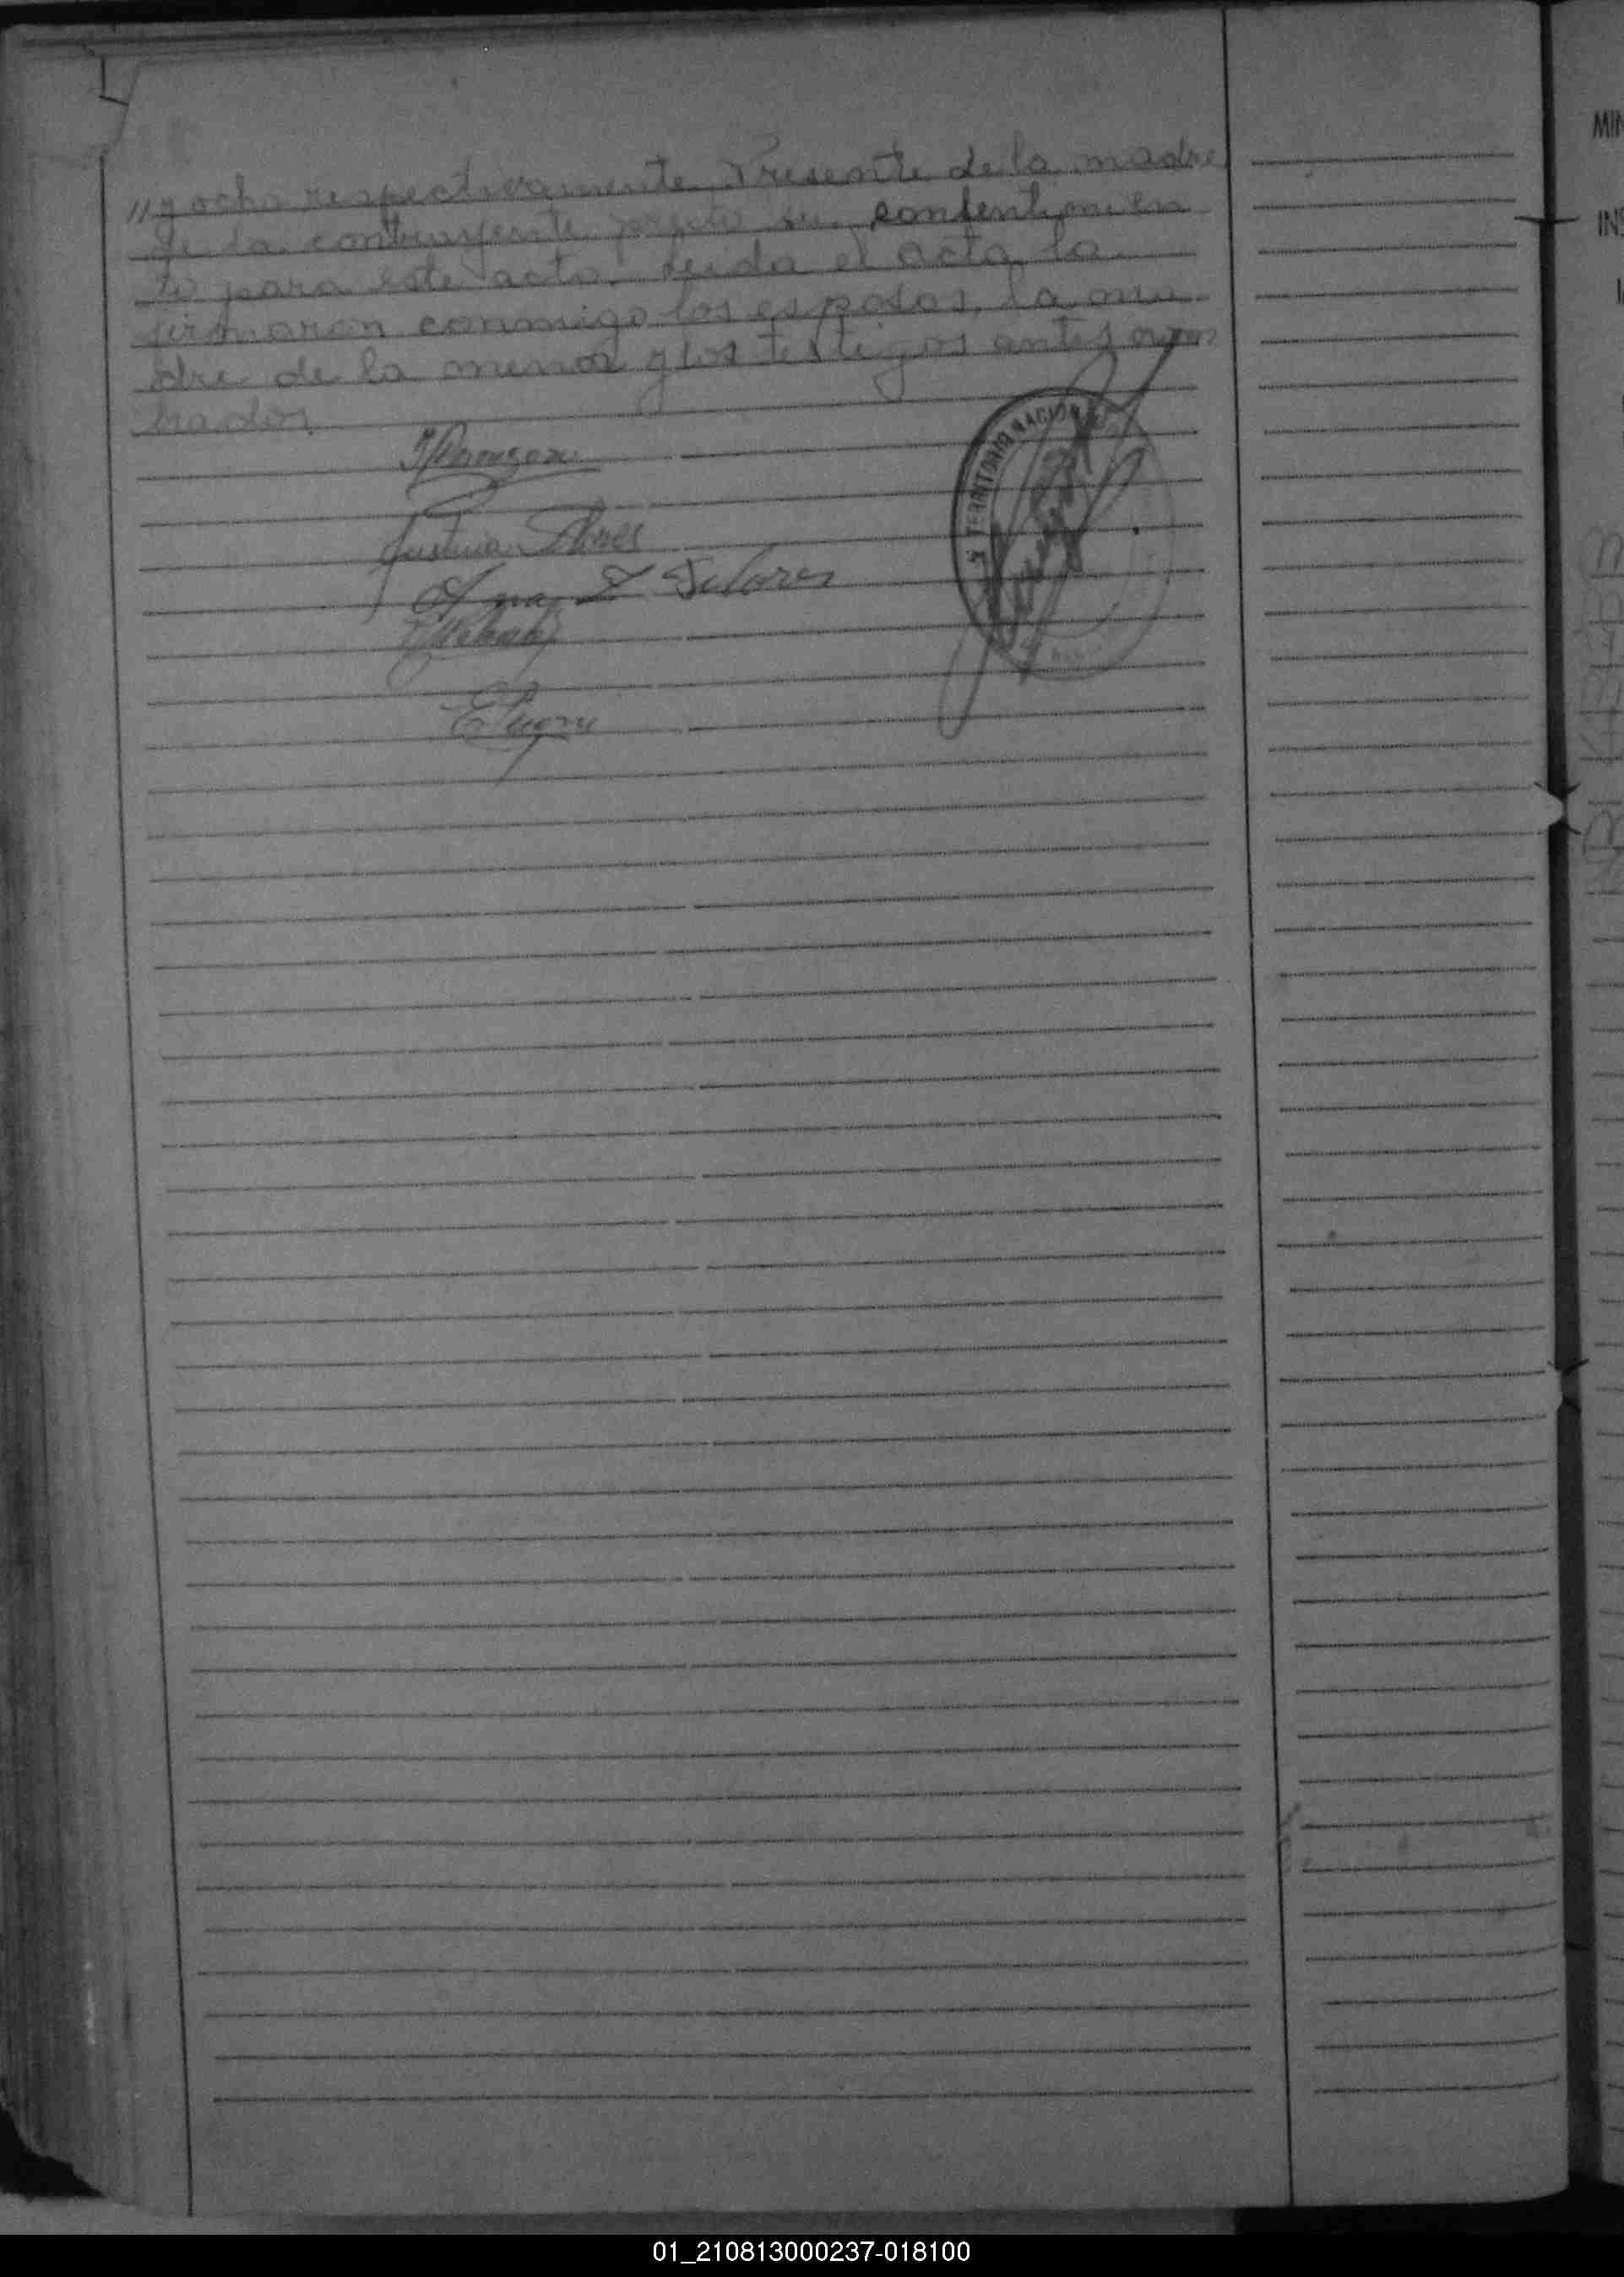 "y ocho respectivamente. Presente de la madre
de la contrayente presto su consentimien
to para este acto. Leida el acta la
firmaron conmigo los esposos, la ma
dre de la menor y los testigos antes nom
brados
Justina Flores
TERRITORIO NACION
MIN
INS
01_210813000237-018100